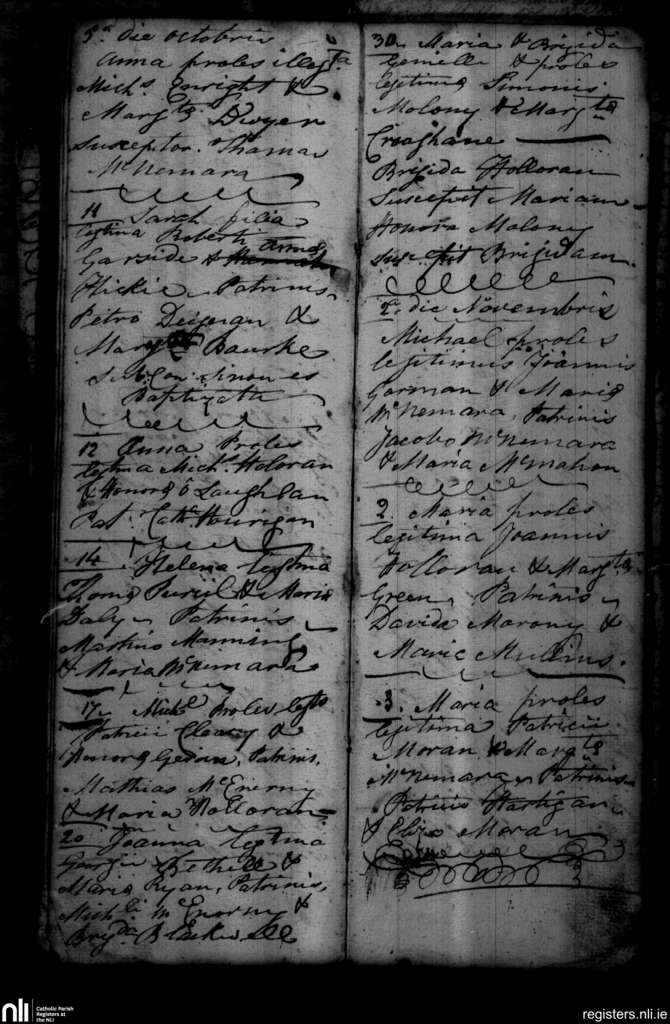 5a die octobris
Anna proles illegta
Michs Enright &
Margta Dwyer
Susceptor Thoma
McNemara
11 Sarah filia
legtima Roberti
Garside & Anna
Hickie Patrinis
Petro Deignan &
Mary Bourke
Baptizata
12 Anna Proles
legtma Mich. Holoran
& Honora O Laughlan
Pat. Cath. Hourigan
14 Helena legtma
Thoma & Maria
Daly Patrinis
Martino Manning
& Maria McNemara
17 Michl Proles legta
Patricii Cleary &
Honora Patrinis,
Mathias McEnerny
& Maria Holloran
20 Joanna legtma
Georgii Bethell &
Maria Ryan, Patrinis,
Michli McEnerny &
Brigda Blackwell
30. Maria & Brigida
Gemelle & proles
legitima Simonis
Molony & Margta
Creaghane
Brigida Holloran
Suscepit Mariam
Honora Molony
Suscepit Brigidam
2a die Novembris
Michael proles
legitimus Joannis
Gorman & Maria
McNemara, Patrinis
Jacobo McNemara
& Maria McMahon
2. Maria proles
legitima Joannis
Holloran & Margta
Green, Patrinis
Davida Marony &
Marie Mullins.
3. Maria proles
legitima Patricii
Moran & Margta
McNemara, Patrinis
Patricio Hartigan
& Eliza Moran
nli Catholic Parish
Registers at
the NLI
registers.nli.ie